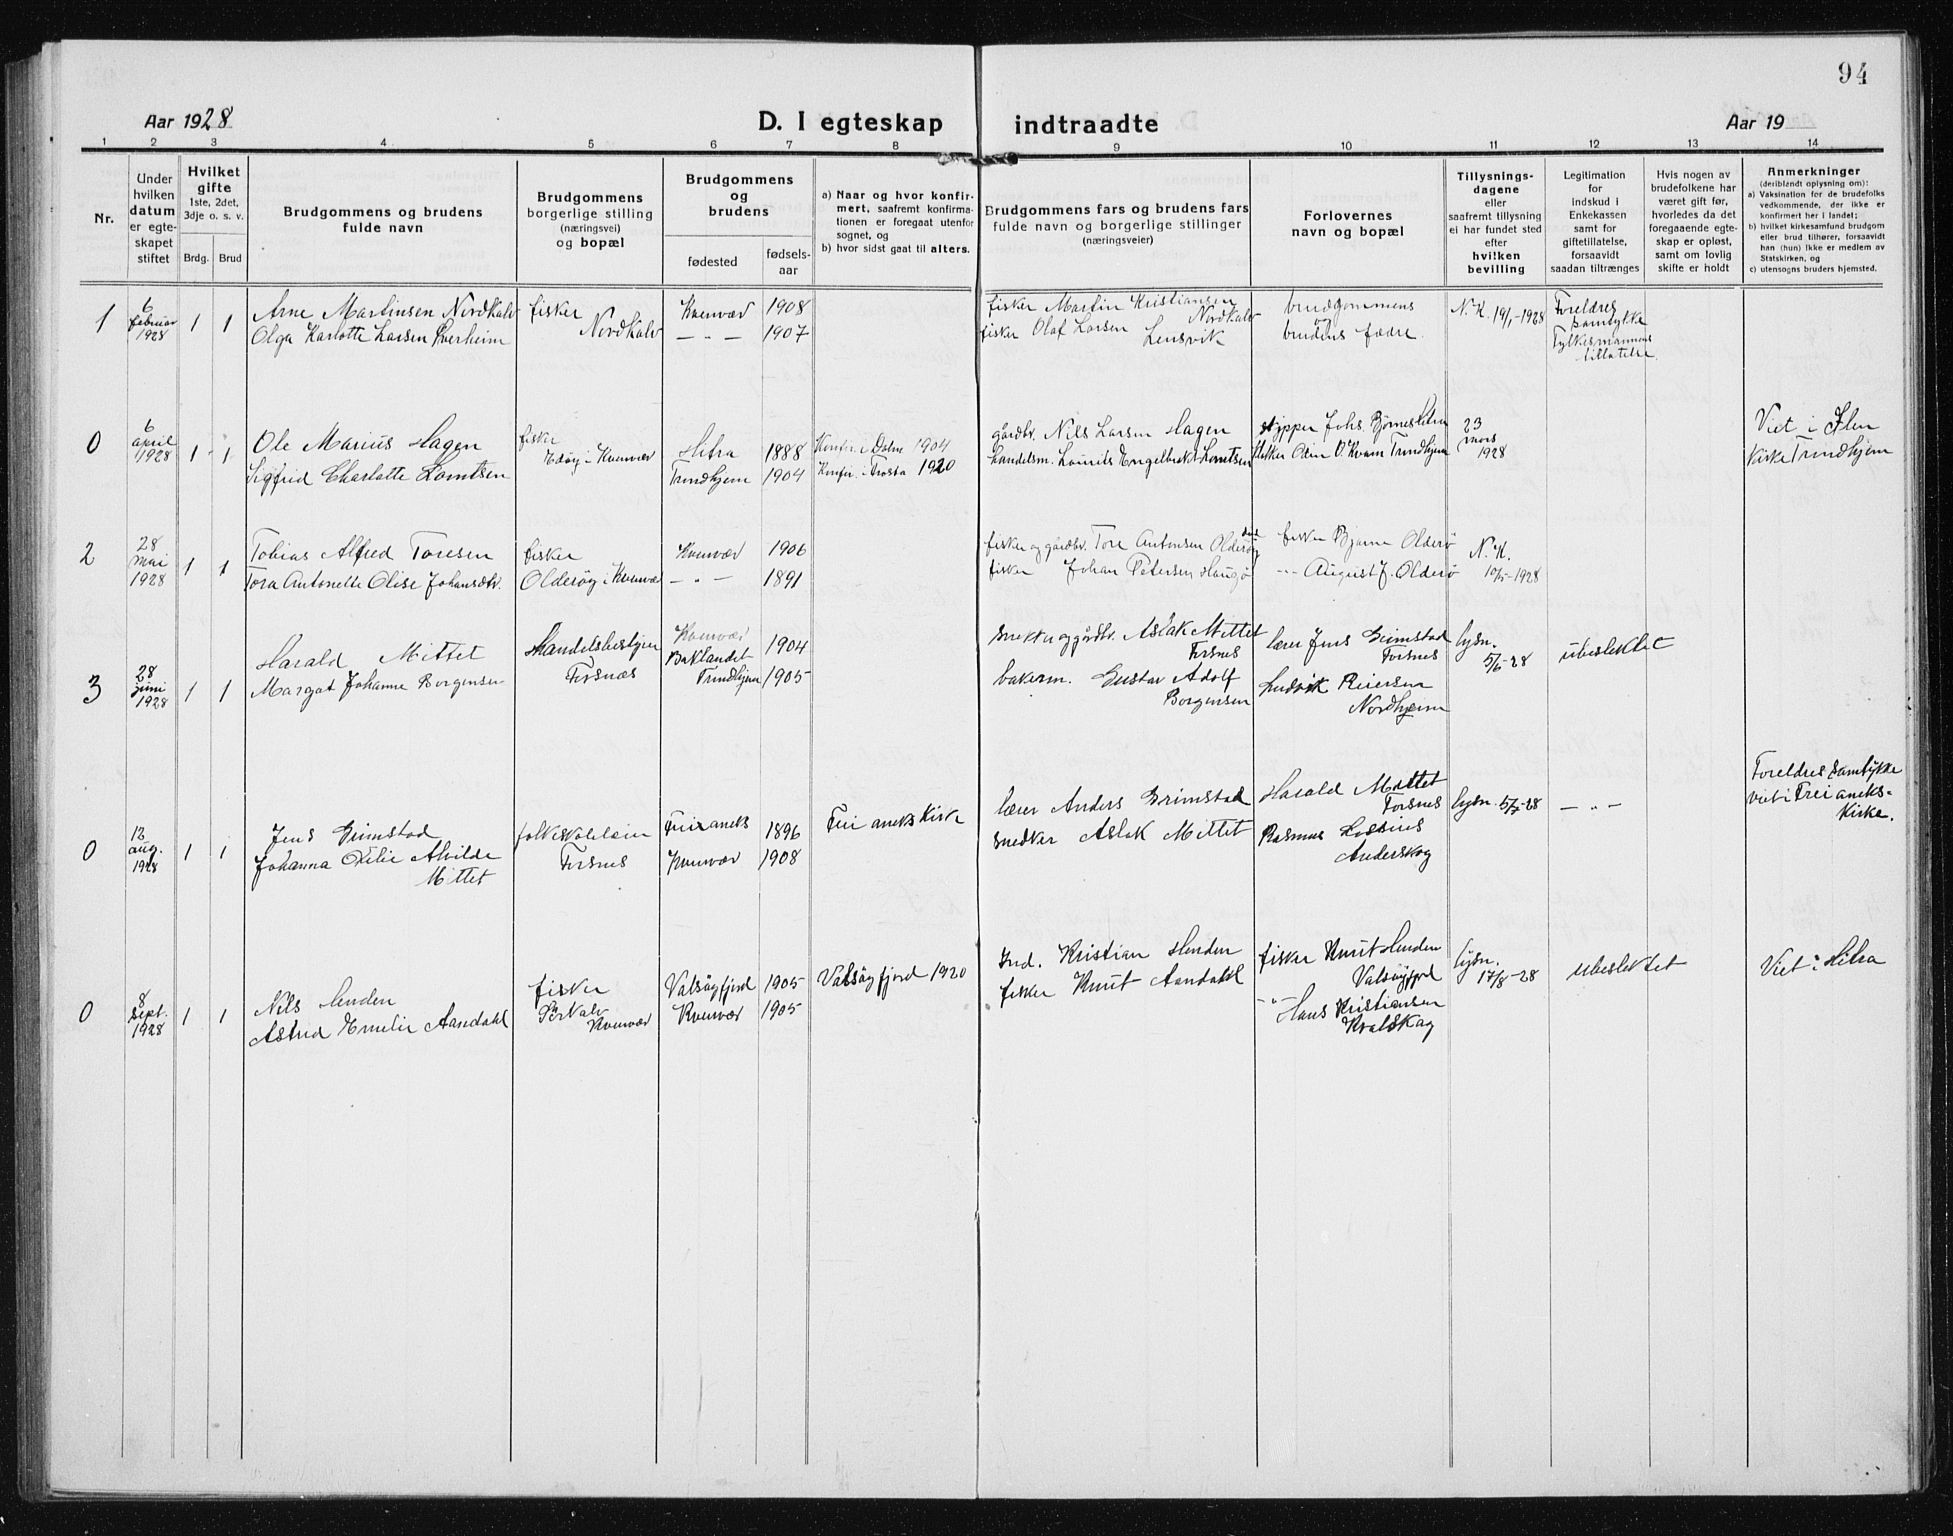 94
Aar 1928
D. I egteskap
indtraadte
Aar 19
1 2 3 4 5 6 7 8 9 10 11 12 13 14
Nr.
Under
hvilken
datum
er egte-
skapet
stiftet
Hvilket
gifte
1ste, 2det,
3dje o. s. v.
Brdg. Brud
Brudgommens og brudens
fulde navn
Brudgommens
borgerlige stilling
(næringsvei)
og bopæl
Brudgommens
og
brudens
fødested
fødsels-
aar
a) Naar og hvor konfir-
mert, saafremt konfirma-
tionen er foregaat utenfor
sognet, og
b) hvor sidst gaat til alters.
Brudgommens fars og brudens fars
fulde navn og borgerlige stillinger
(næringsveier)
Forlovernes
navn og bopæl
Tillysnings-
dagene
eller
saafremt tillysning
ei har fundet sted
efter
hvilken
bevilling
Legitimation
for
indskud i
Enkekassen
samt for
giftetillatelse,
forsaavidt
saadan tiltrænges
Hvis nogen av
brudefolkene har
været gift før,
hvorledes da det
foregaaende egte-
skap er opløst,
samt om lovlig
skifte er holdt
Anmerkninger
(deriblandt oplysning om):
a) Vaksination for de brudefolks
vedkommende, der ikke er
konfirmert her i landet;
b) hvilket kirkesamfund brudgom
eller brud tilhører, forsaavidt
han (hun) ikke er medlem av
Statskirken, og
c) utensogns bruders hjemsted.
1
6
februar
1928
1 1
Arne Martinsen Nordkalv
Olga Karlotte Larsen
fisker
Nordkalv
Kvenvær 1908
— " — 1907
fisker Martin Kristiansen
Nordkalv
fisker Olaf Larsen
Lensvik
brudgommens
og
brudens fædre.
N. K. 19/1-1928
Foreldres
samtykke
Fylkesmannens
tillatelse
0
6
april
1928
1 1
Ole Marius Hagen
Sigfrid Charlotte Lorntsen
fisker
Edøy i Kvenvær
Hitra 1888
Trondhjem 1904
Konfir. i Dolm 1904
Konfir. i Frosta 1920
gårdbr. Nils Larsen Hagen
handelsm. Laurits Engelbrekt Lorntsen
skipper Johs. Bjørneseter
Odin O. Kvam Trondhjem
23
mars
1928
Viet i Ilen
Kirke Trondhjem
2
28
mai
1928
1 1
Tobias Alfred Toresen
Tora Antonette Olise Johansdtr.
fisker
Olderøy i Kvenvær
Kvenvær 1906
— " — 1891
fisker og gårdbr. Tore Antonsen Olderøy
fisker Johan Petersen Haugø
fisker Bjarne Olderø
-"- August J. Olderø
N. K.
10/5-1928
3
28
juni
1928
1 1
Harald Mittet
Margot Johanne Borgensen
Handelsbestyrer
Forsnæs
Kvenvær 1904
Baklandet
Trondhjem 1905
snekker og gårdbr. Aslak Mittet
Forsnes
bakerm. Gustav Adolf
Borgensen
lærer Jens Grimstad
Forsnes
Ludvik Reiersen
Nordhjeim
lysn.
5/6-28
ubeslektet
0
12
aug.
1928
1 1
Jens Grimstad
Johanna Otilie Alvilde
Mittet
folkeskolelærer
Forsnes
Frei aneks 1896
Kvenvær 1908
Frei aneks Kirke
lærer Anders Grimstad
snedker Aslak Mittet
Harald Mittet
Forsnes
Rasmus Lossius
Anderskog
lysn. 5/7-28
— " —
Foreldres samtykke
viet i Frei aneks-
Kirke.
0
8
sept.
1928
1 1
Nils Henden
Astrid Emelie Aandahl
fisker
Sørkalv
Kvenvær
Valsøyfjord 1905
Kvenvær 1905
Valsøyfjord 1920
Ind. Kristian Henden
fisker Knut Aandahl
fisker Knut Henden
Valsøyfjord
-"- Hans Kristiansen
Kvalskag
lysn.
17/8-28
ubeslektet
Viet i Hitra